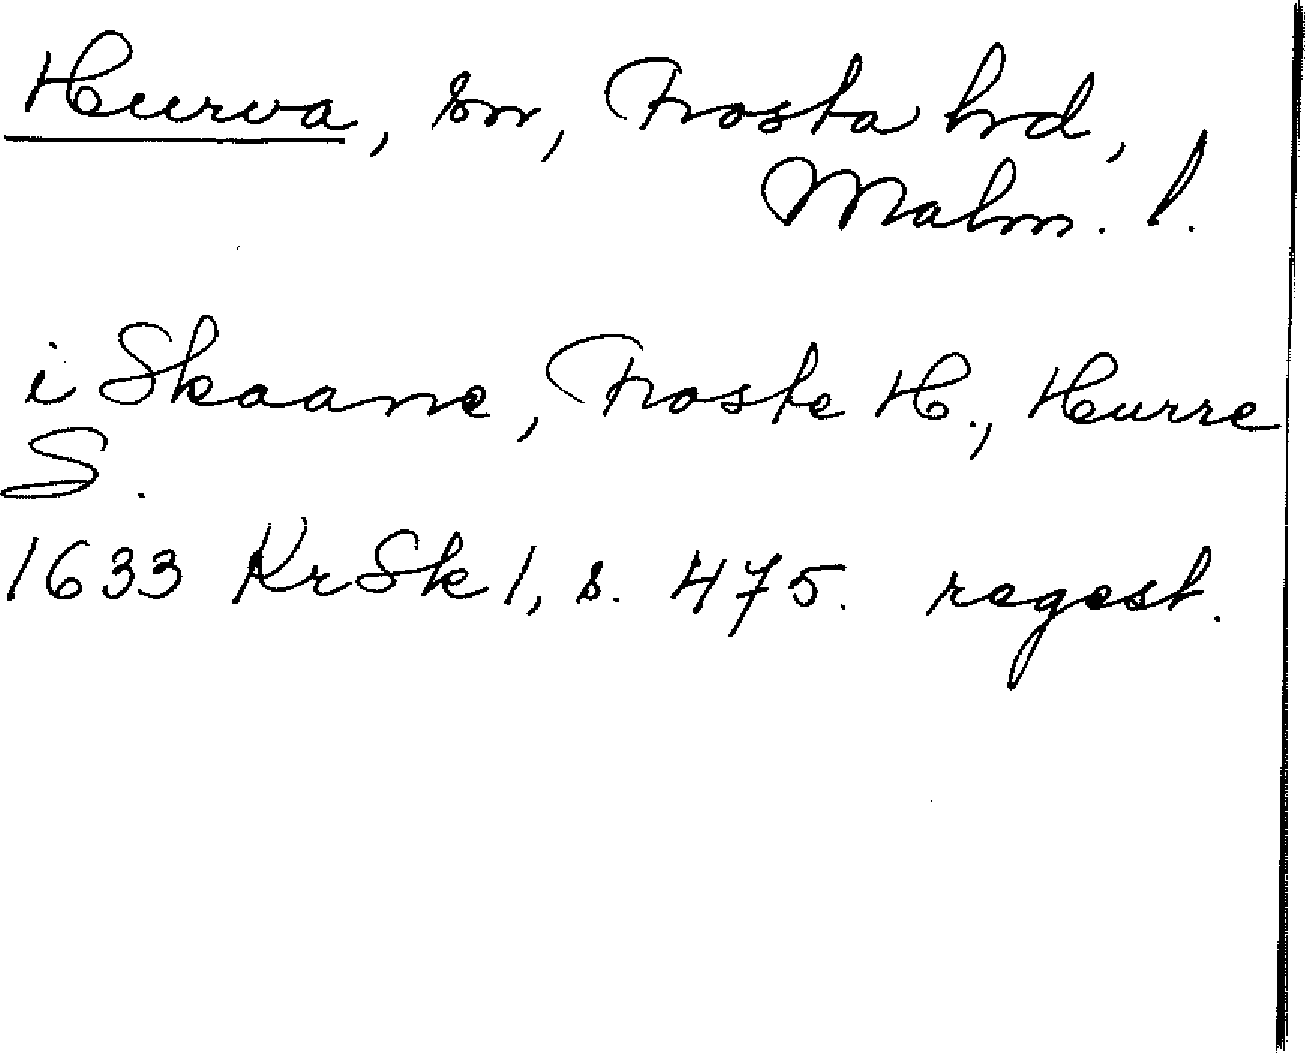 Hurva, sn, Frosta hd,
Malm. l.
i Skaane, Froste H., Hurre
S.
1633 KrSk 1, s. 475. regest.